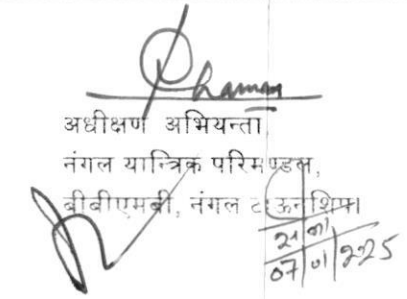 अधीक्षण अभियन्ता
नंगल यान्त्रिक परिमण्डल,
बीबीएमबी, नंगल टाऊनशिप।
07/01/2025